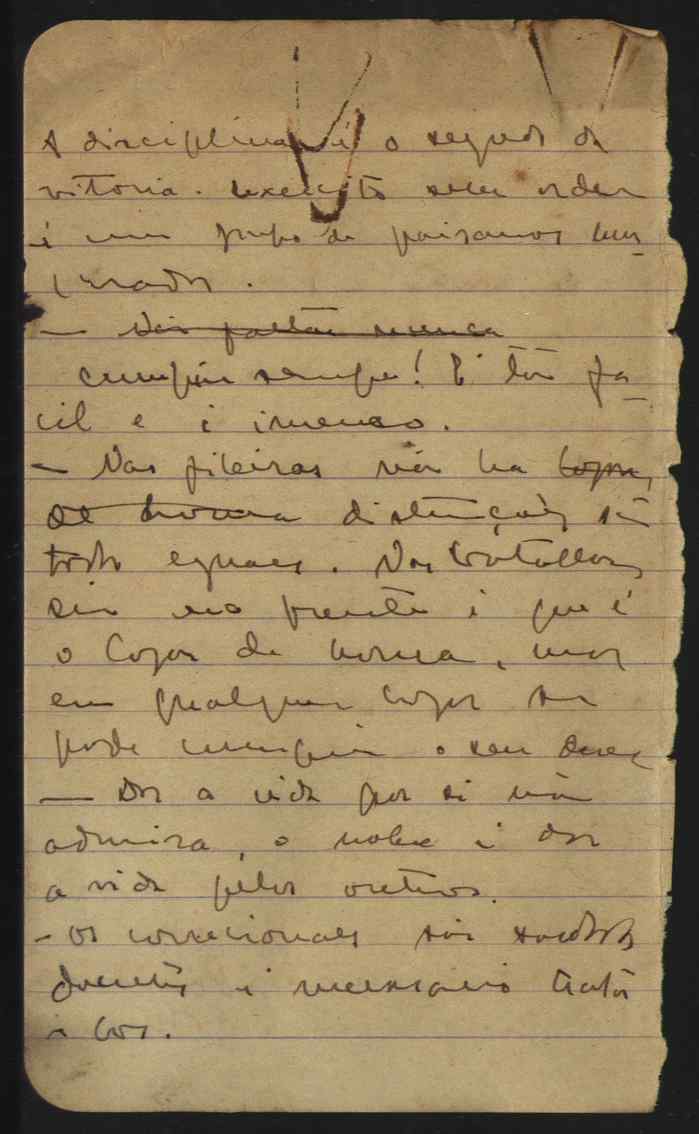 A disciplina é o segredo da
vitoria. Exercito sem ordem
é um grupo de paisanos
— Não faltar nunca
cumprir sempre! É tão fa-
cil e é imenso.
— Nas fileiras não ha logar,
de honra distinções são
todos eguaes. Nas batalhas,
sim na frente é que é
o logar de honra, mas
em qualquer logar se
pode cumprir o seu dever
— Dar a vida por si não
admira, o nobre é dar
a vida pelos outros.
- Os correcionaes são soldados
doentes é necessario trata
-los.